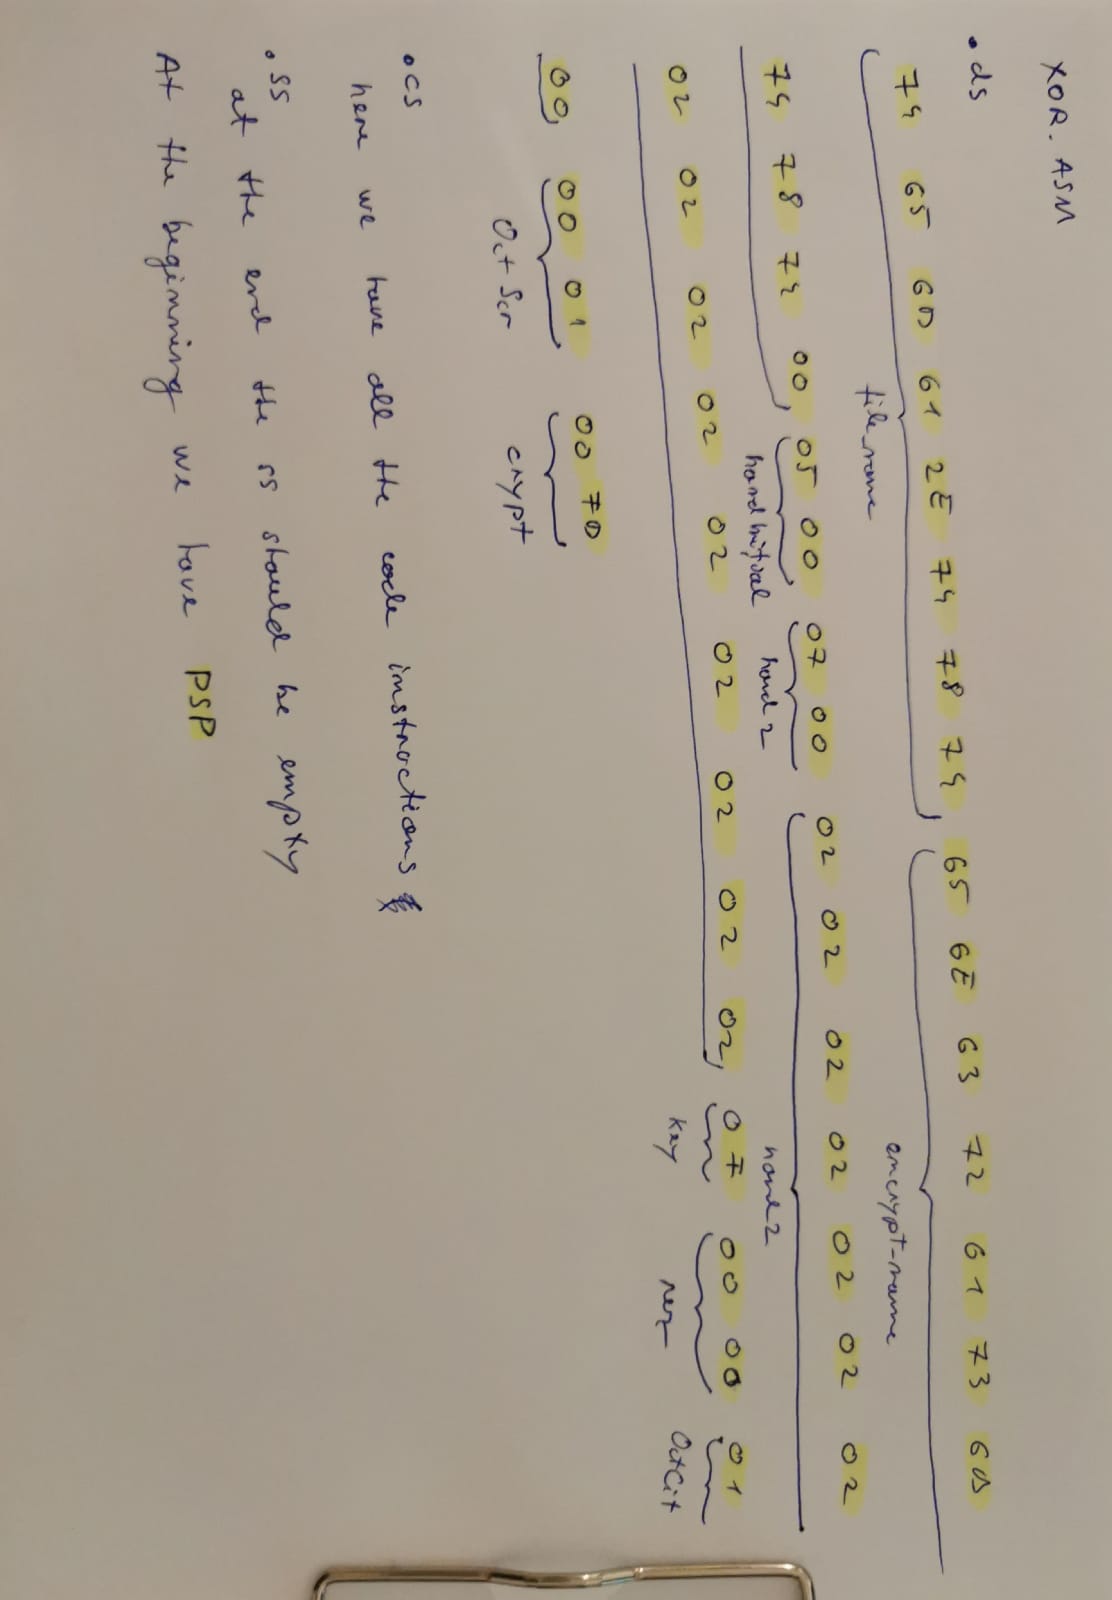 XOR. ASM
• ds
74 65 6D 61 2E 74 78 74 65 6E 63 72 61 73 6D
file_name encrypt-name
74 78 74 00 05 00 07 00 02 02 02 02 02 02 02
hand 2
02 02 02 02 02 02 02 02 02 07 00 00 01
key rez OctCit
00 00 01 00 7D
Oct Scr crypt
• cs
here we have all the code instructions
• ss
at the end the ss should be empty
At the beginning we have PSP